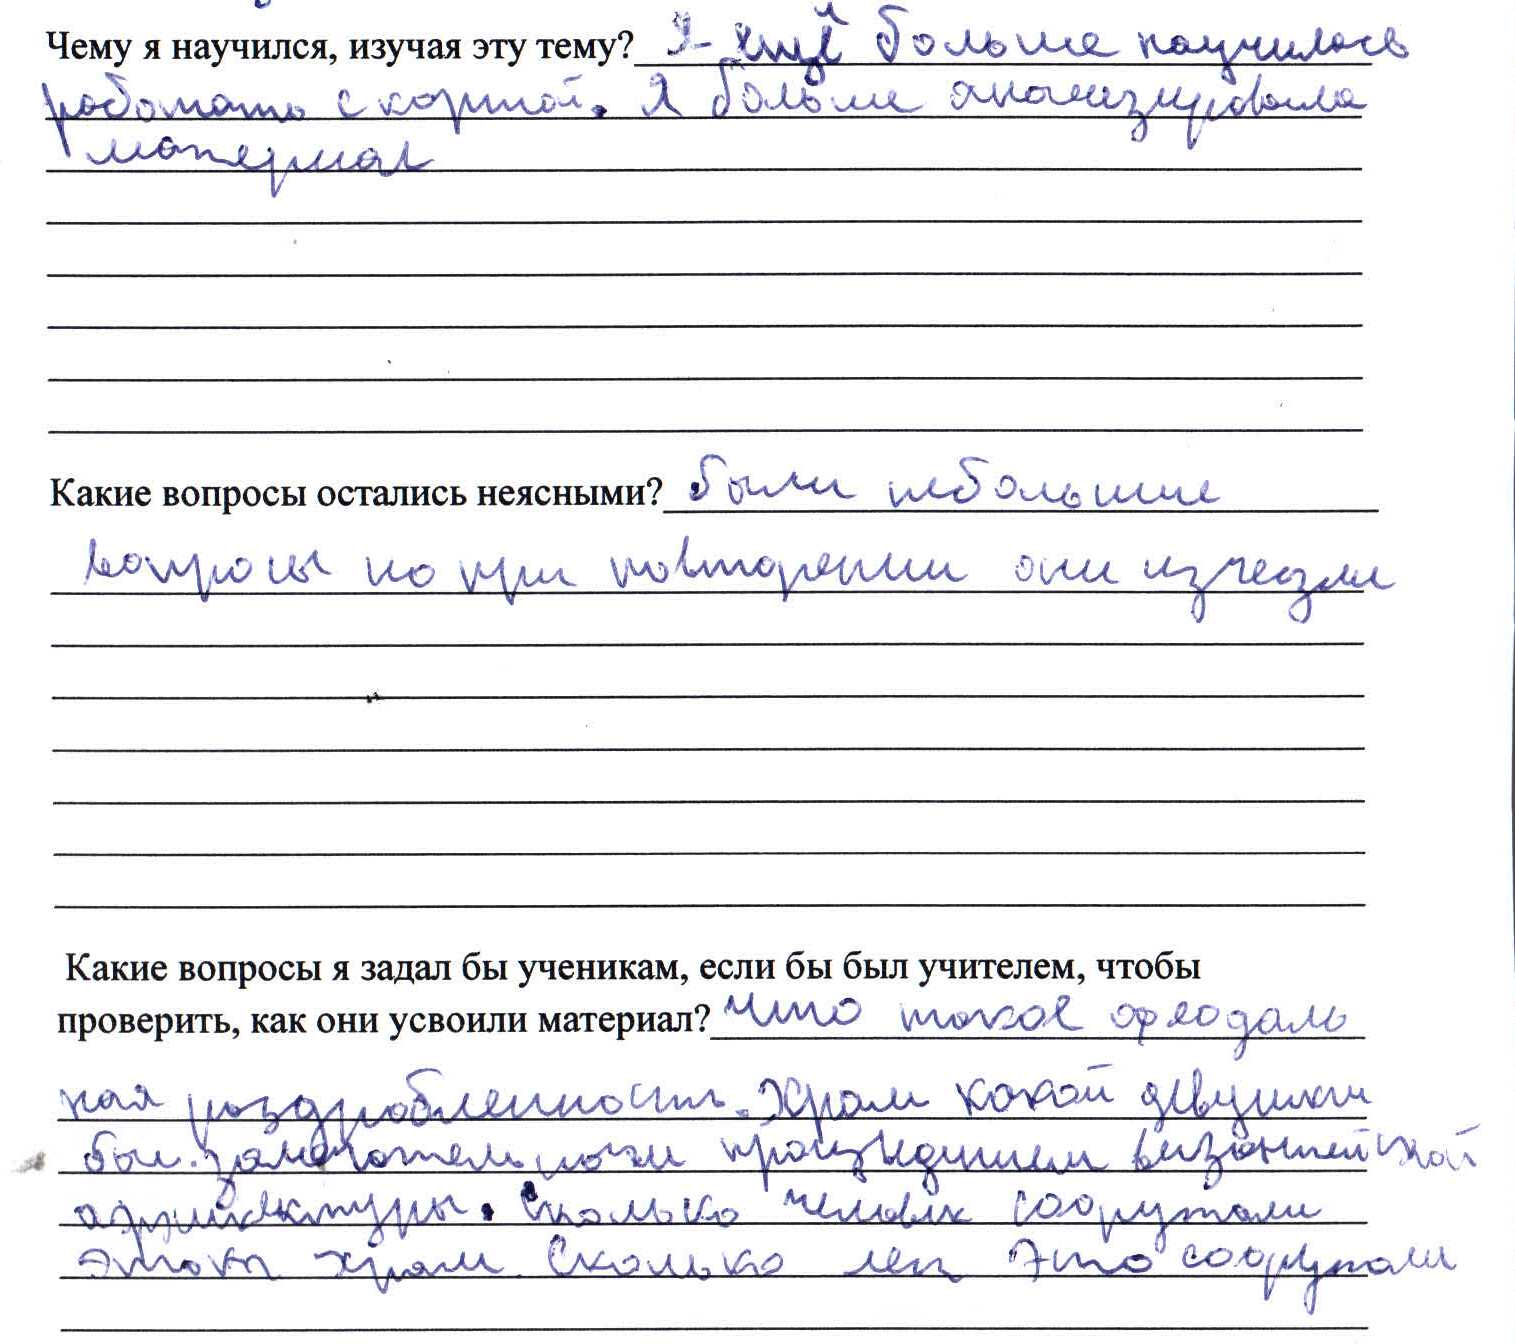 Чему я научился, изучая эту тему? Я ещё больше научилась
работать с картой. Я больше анализировала
материал
Какие вопросы остались неясными? были небольшие
вопросы но при повторении они изчезли
Какие вопросы я задал бы ученикам, если бы был учителем, чтобы
проверить, как они усвоили материал? Что такое феодаль
ная раздробленность. Храм какой
был замечательным произведением византейской
архитектуры. Сколько человек сооружали
этот храм. Сколько лет это сооружали